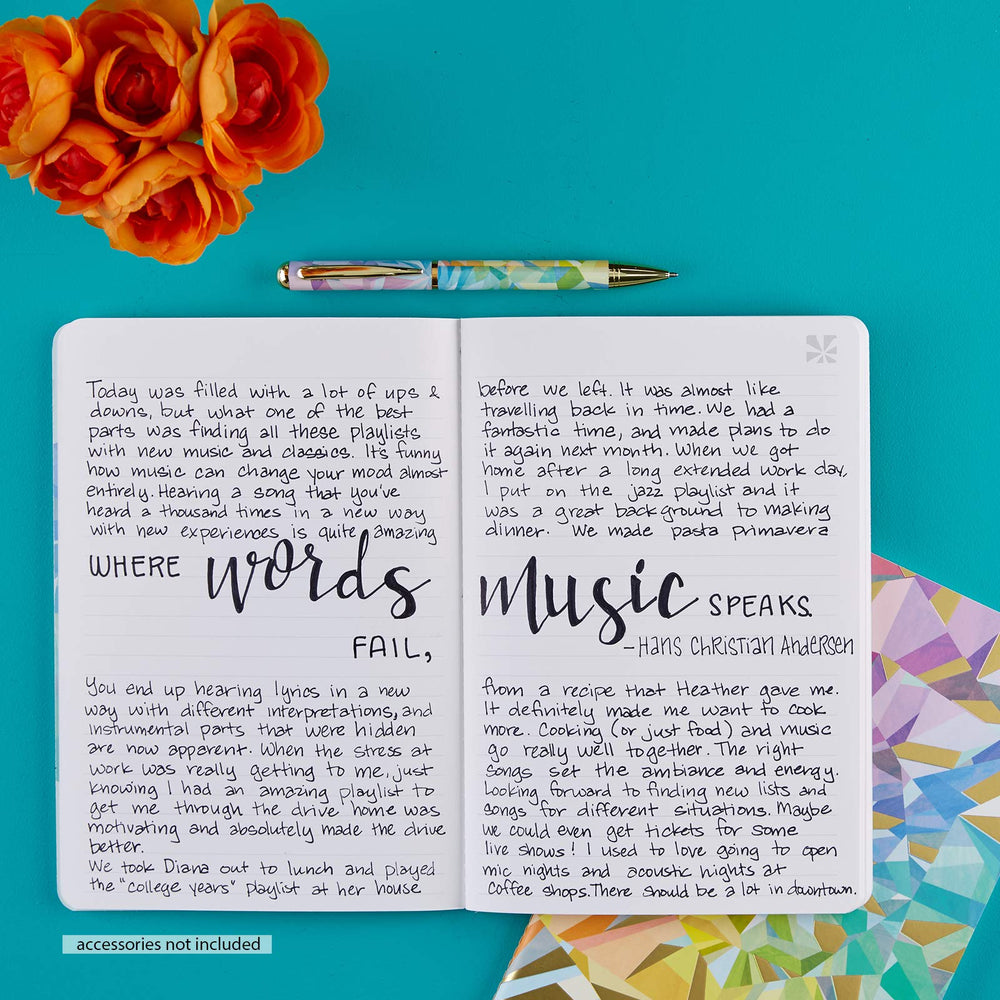 Today was filled with a lot of ups &
downs, but what one of the best
parts was finding all these playlists
with new music and classics. It's funny
how music can change your mood almost
entirely. Hearing a song that you've
heard a thousand times in a new way
with new experiences is quite amazing
WHERE words
FAIL,
You end up hearing lyrics in a new
way with different interpretations, and
instrumental parts that were hidden
are now apparent. When the stress at
work was really getting to me, just
knowing I had an amazing playlist to
get me through the drive home was
motivating and absolutely made the drive
better.
We took Diana out to lunch and played
the "college years" playlist at her house
before we left. It was almost like
travelling back in time. We had a
fantastic time, and made plans to do
it again next month. When we got
home after a long extended work day,
I put on the jazz playlist and it
was a great background to making
dinner. We made pasta primavera
music SPEAKS.
-Hans Christian Andersen
from a recipe that Heather gave me.
It definitely made me want to cook
more. Cooking (or just food) and music
go really well together. The right
songs set the ambiance and energy.
Looking forward to finding new lists and
songs for different situations. Maybe
we could even get tickets for some
live shows! I used to love going to open
mic nights and acoustic nights at
coffee shops. There should be a lot in downtown.
accessories not included